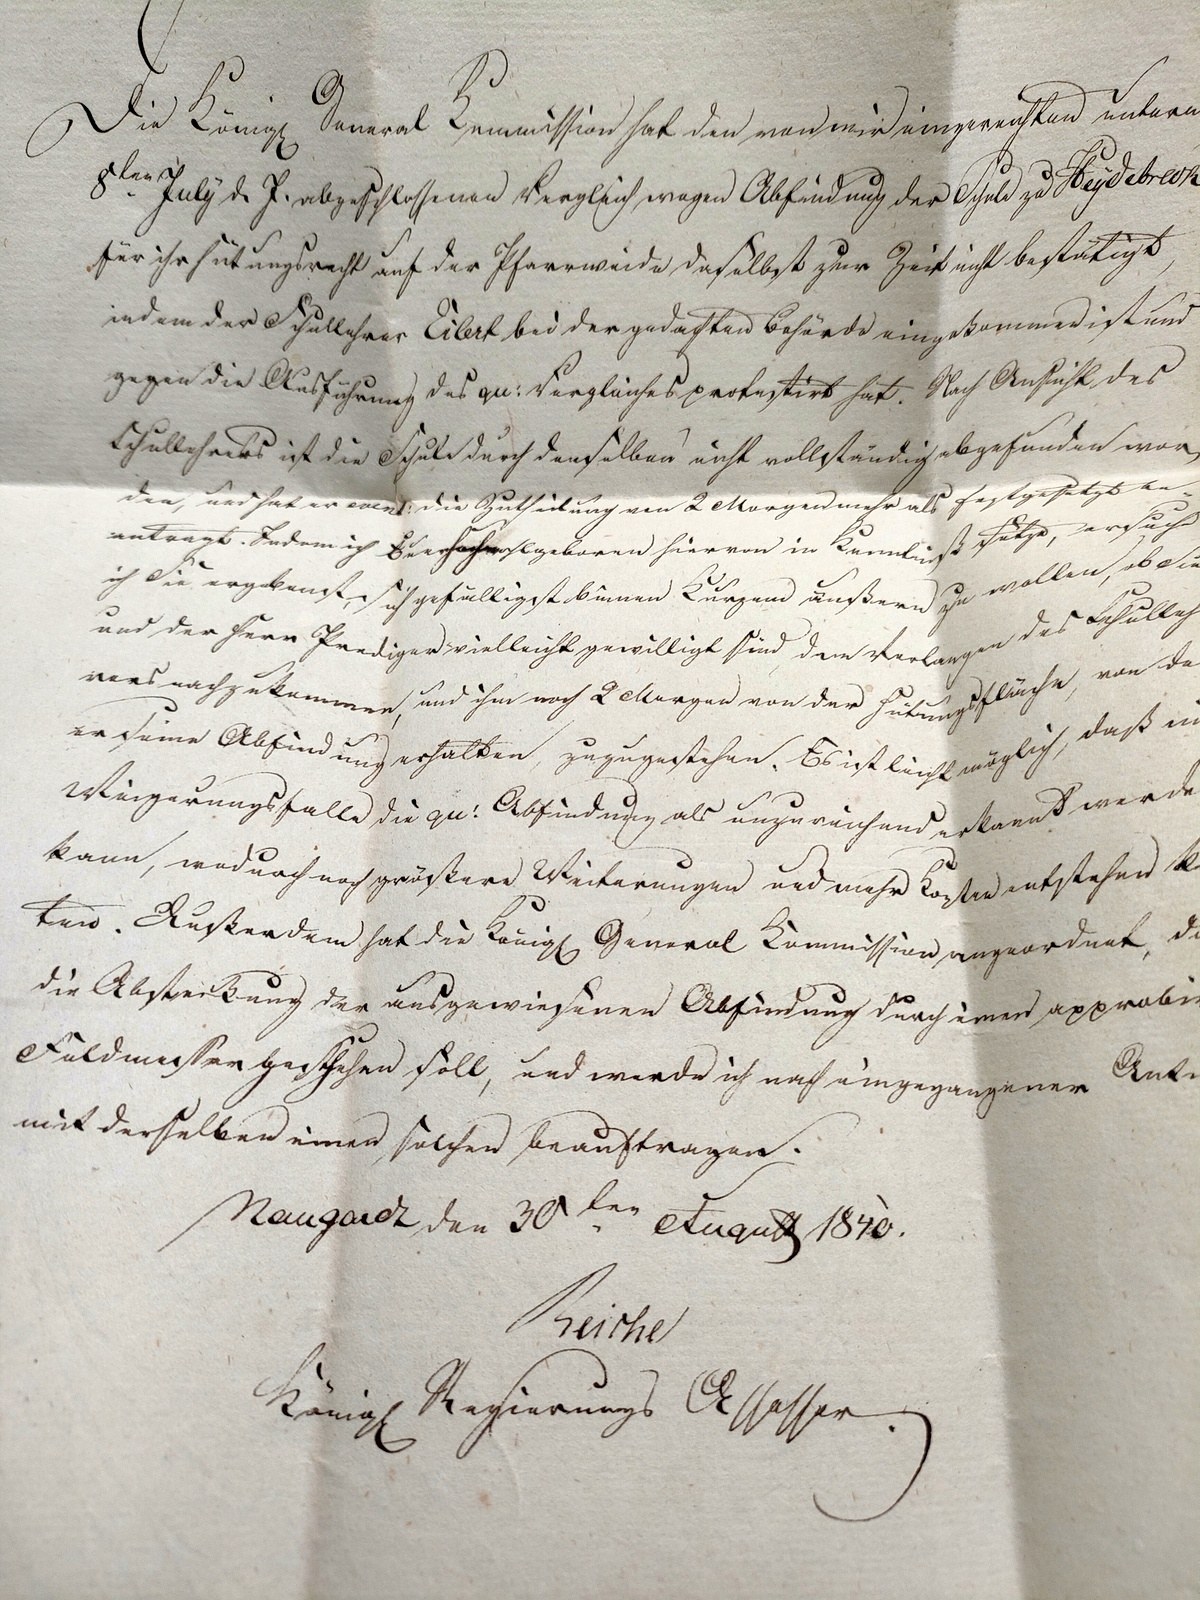 Die Königl General Kommission hat den von mir eingereichten unterm
8ten July d. J. abgeschlossenen Vergleich wegen Abfindung der Schule zu Heydebreck
für ihr Hütungsrecht auf der Pfarrweide daselbst zur Zeit nicht bestätigt,
indem der Schullehrer Eilert bei der gedachten Behörde eingekommen ist und
gegen die Ausführung des qu: Vergleiches protestirt hat. Nach Ansicht des
Schullehrers ist die Schule durch denselben nicht vollständig abgefunden wor
den, und hat er event: die Zutheilung von 2 Morgen mehr als festgesetzt be-
antragt. Indem ich Euer Hochwohlgeboren hiervon in Kenntniß setze, ersuche
ich Sie ergebenst, sich gefälligst binnen Kurzem äußern zu wollen, ob Sie
und der Herr Prediger vielleicht gewilligt sind, dem Verlangen des Schulleh
rers nachzukommen, und ihm noch 2 Morgen von der Hütungsfläche, von da
er seine Abfindung erhalten, zuzugestehen. Es ist leicht möglich, daß im
Weigerungsfalle die qu: Abfindung als unzureichend erkannt werde
kann, wodurch noch größere Weiterungen und mehr Kosten entstehen k
ten. Außerdem hat die Königl General Kommission angeordnet, da
die Absteckung der ausgewiesenen Abfindung durch einen approbir
Feldmesser geschehen soll, und werde ich nach eingegangener Antw
mit derselben einen solchen beauftragen.
Naugardt den 30ten August 1840.
Reiche
Königl Regierungs Assessor.